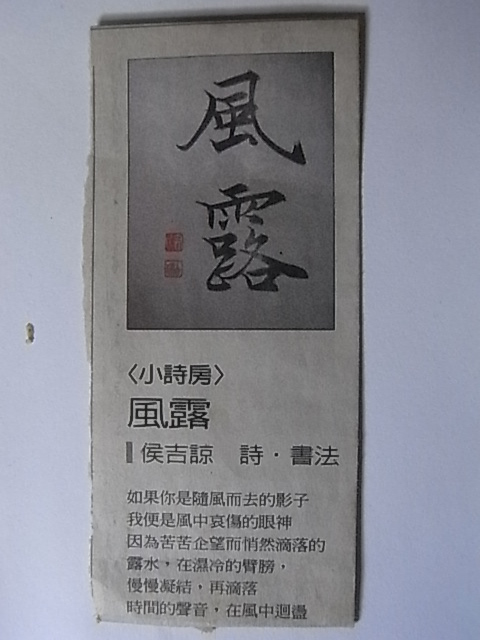 風露
〈小詩房〉
風露
侯吉諒 詩·書法
如果你是隨風而去的影子
我便是風中哀傷的眼神
因為苦苦企望而悄然滴落的
露水，在濕冷的臂膀，
慢慢凝結，再滴落
時間的聲音，在風中迴盪